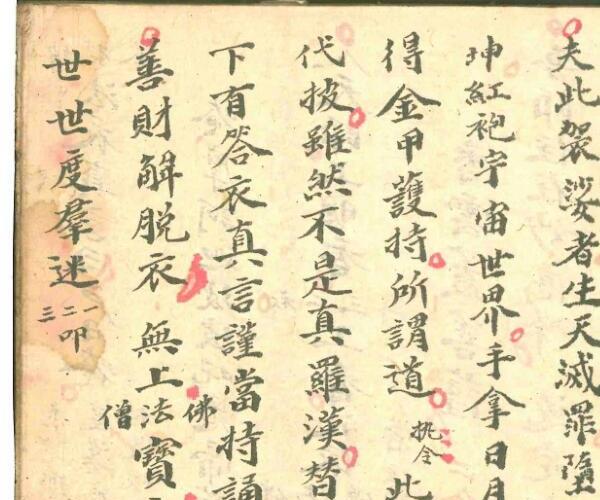 夫此袈裟者生天滅罪墮
坤紅袍宇宙世界手拿日月
得金甲護持所謂道执令此
代披雖然不是真羅漢替
下有答衣真言謹當持誦
善財解脫衣無上佛法僧寶
世世度羣迷一二三叩